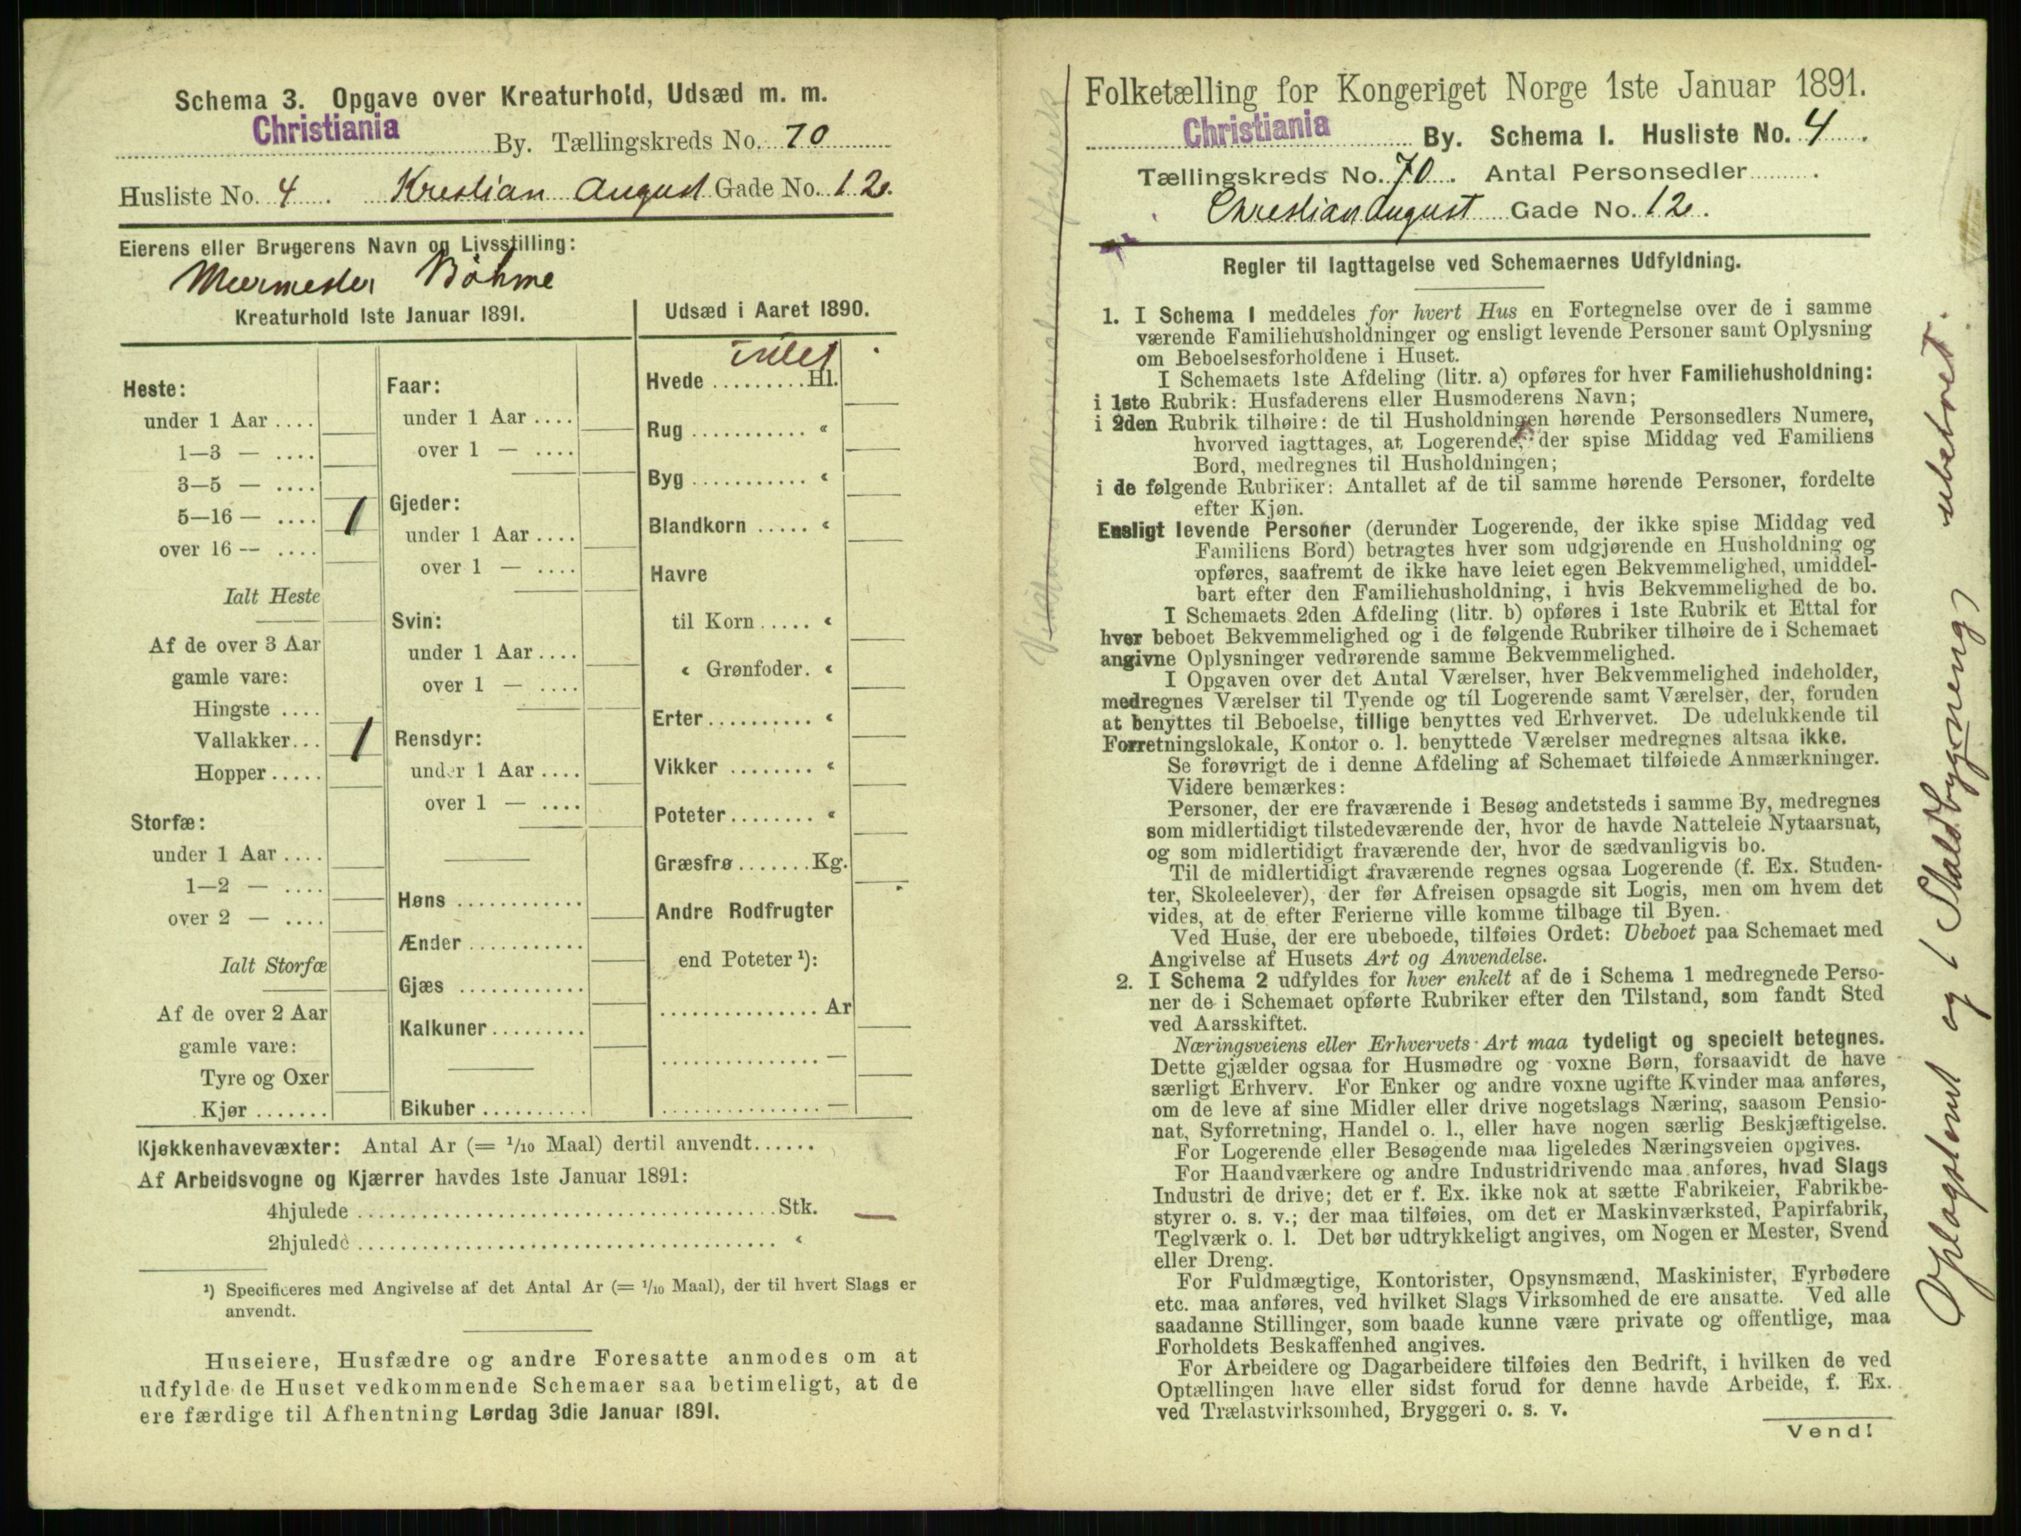 Schema 3. Opgave over Kreaturhold, Udsæd m. m.
Christiania By. Tællingskreds No. 70
Husliste No. 4. Kristian August Gade No. 12.
Eierens eller Brugerens Navn og Livsstilling:
Murmester Böhme
Kreaturhold 1ste Januar 1891.
Heste:
under 1 Aar ....
1—3 — ....
3—5 — ....
5—16 — .... 1
over 16 — ....
Ialt Heste
Af de over 3 Aar
gamle vare:
Hingste ....
Vallakker... 1
Hopper .....
Storfæ:
under 1 Aar ....
1—2 — ....
over 2 — ....
Ialt Storfæ
Af de over 2 Aar
gamle vare:
Tyre og Oxer
Kjør .......
Faar:
under 1 Aar ....
over 1 — ....
Gjeder:
under 1 Aar ....
over 1 — ....
Svin:
under 1 Aar ....
over 1 — ....
Rensdyr:
under 1 Aar ....
over 1 — ....
Høns ............
Ænder ...........
Gjæs ............
Kalkuner.........
Bikuber ..........
Udsæd i Aaret 1890.
intet
Hvede .........Hl.
Rug ........... «
Byg ........... «
Blandkorn ..... «
Havre
til Korn ..... «
« Grønfoder. «
Erter.......... «
Vikker ........ «
Poteter........ «
Græsfrø .......Kg.
Andre Rodfrugter
end Poteter ¹):
............... Ar
............... —
............... —
Kjøkkenhavevæxter: Antal Ar (= 1/10 Maal) dertil anvendt......
Af Arbeidsvogne og Kjærrer havdes 1ste Januar 1891:
4hjulede ........................................Stk. —
2hjulede ........................................ «
¹) Specificeres med Angivelse af det Antal Ar (= 1/10 Maal), der til hvert Slags er
anvendt.
Huseiere, Husfædre og andre Foresatte anmodes om at
udfylde de Huset vedkommende Schemaer saa betimeligt, at de
ere færdige til Afhentning Lørdag 3die Januar 1891.
Folketælling for Kongeriget Norge 1ste Januar 1891.
Christiania By. Schema I. Husliste No. 4.
Tællingskreds No. 70. Antal Personsedler .
Christian August Gade No. 12.
Regler til Iagttagelse ved Schemaernes Udfyldning.
1. I Schema 1 meddeles for hvert Hus en Fortegnelse over de i samme
værende Familiehusholdninger og ensligt levende Personer samt Oplysning
om Beboelsesforholdene i Huset.
I Schemaets 1ste Afdeling (litr. a) opføres for hver Familiehusholdning:
i 1ste Rubrik: Husfaderens eller Husmoderens Navn;
i 2den Rubrik tilhøire: de til Husholdningen hørende Personsedlers Numere,
hvorved iagttages, at Logerende, der spise Middag ved Familiens
Bord, medregnes til Husholdningen;
i de følgende Rubriker: Antallet af de til samme hørende Personer, fordelte
efter Kjøn.
Ensligt levende Personer (derunder Logerende, der ikke spise Middag ved
Familiens Bord) betragtes hver som udgjørende en Husholdning og
opføres, saafremt de ikke have leiet egen Bekvemmelighed, umiddel-
bart efter den Familiehusholdning, i hvis Bekvemmelighed de bo.
I Schemaets 2den Afdeling (litr. b) opføres i 1ste Rubrik et Ettal for
hver beboet Bekvemmelighed og i de følgende Rubriker tilhøire de i Schemaet
angivne Oplysninger vedrørende samme Bekvemmelighed.
I Opgaven over det Antal Værelser, hver Bekvemmelighed indeholder,
medregnes Værelser til Tyende og til Logerende samt Værelser, der, foruden
at benyttes til Beboelse, tillige benyttes ved Erhvervet. De udelukkende til
Forretningslokale, Kontor o. l. benyttede Værelser medregnes altsaa ikke.
Se forøvrigt de i denne Afdeling af Schemaet tilføiede Anmærkninger.
Videre bemærkes:
Personer, der ere fraværende i Besøg andetsteds i samme By, medregnes
som midlertidigt tilstedeværende der, hvor de havde Natteleie Nytaarsnat,
og som midlertidigt fraværende der, hvor de sædvanligvis bo.
Til de midlertidigt fraværende regnes ogsaa Logerende (f. Ex. Studen-
ter, Skoleelever), der før Afreisen opsagde sit Logis, men om hvem det
vides, at de efter Ferierne ville komme tilbage til Byen.
Ved Huse, der ere ubeboede, tilføies Ordet: Ubeboet paa Schemaet med
Angivelse af Husets Art og Anvendelse.
2. I Schema 2 udfyldes for hver enkelt af de i Schema 1 medregnede Perso-
ner de i Schemaet opførte Rubriker efter den Tilstand, som fandt Sted
ved Aarsskiftet.
Næringsveiens eller Erhvervets Art maa tydeligt og specielt betegnes.
Dette gjælder ogsaa for Husmødre og voxne Børn, forsaavidt de have
særligt Erhverv. For Enker og andre voxne ugifte Kvinder maa anføres,
om de leve af sine Midler eller drive nogetslags Næring, saasom Pensio-
nat, Syforretning, Handel o. l., eller have nogen særlig Beskjæftigelse.
For Logerende eller Besøgende maa ligeledes Næringsveien opgives.
For Haandværkere og andre Industridrivende maa anføres, hvad Slags
Industri de drive; det er f. Ex. ikke nok at sætte Fabrikeier, Fabrikbe-
styrer o. s. v.; der maa tilføies, om det er Maskinværksted, Papirfabrik,
Teglværk o. l. Det bør udtrykkeligt angives, om Nogen er Mester, Svend
eller Dreng.
For Fuldmægtige, Kontorister, Opsynsmænd, Maskinister, Fyrbødere
etc. maa anføres, ved hvilket Slags Virksomhed de ere ansatte. Ved alle
saadanne Stillinger, som baade kunne være private og offentlige, maa
Forholdets Beskaffenhed angives.
For Arbeidere og Dagarbeidere tilføies den Bedrift, i hvilken de ved
Optællingen have eller sidst forud for denne havde Arbeide, f. Ex.
ved Trælastvirksomhed, Bryggeri o. s. v.
Vend!
Oplagstomt og (Staldbygning) ubeboet.